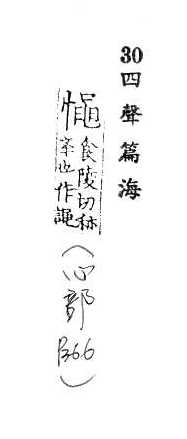 30 四聲篇海
憴 食陵切秫
也作譝
(心部
P366)